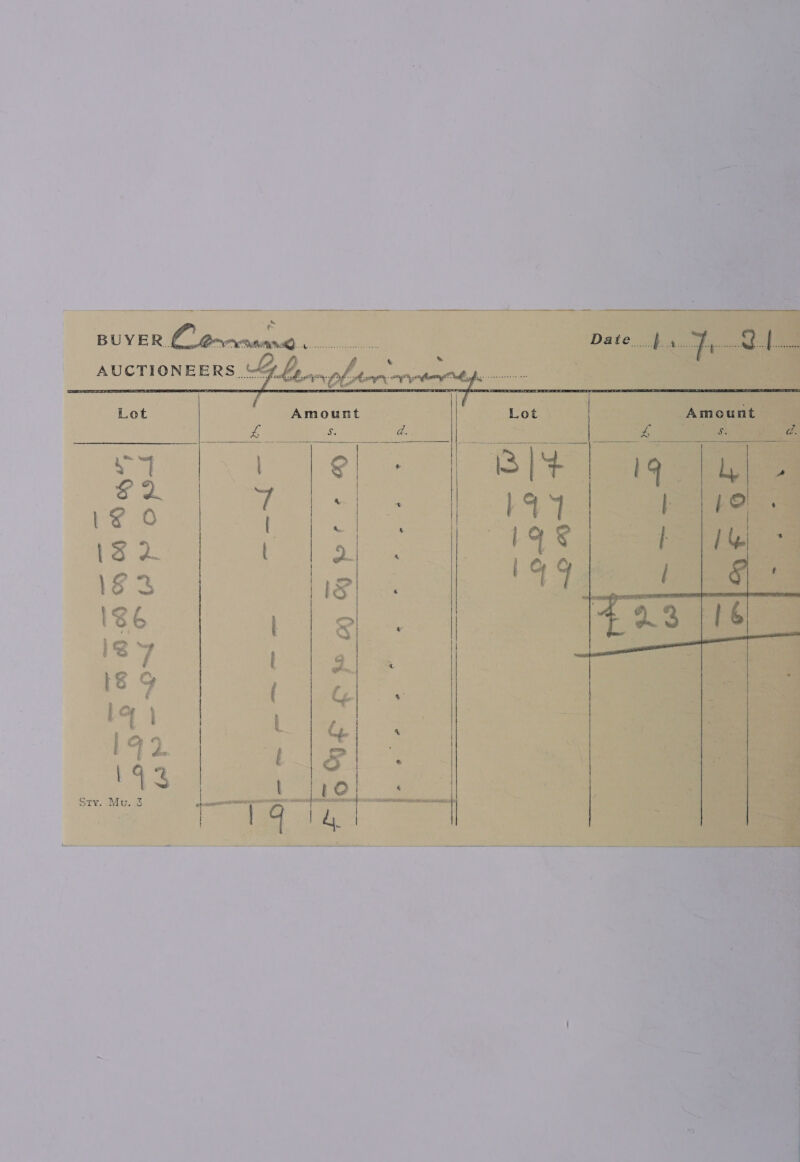 BUYER
Date 1. 7. 21
AUCTIONEERS Glendining
Lot Amount Lot Amount
£ s. d. £ s. d.
57 1 8 " B/F 19 4 "
82 7 " " 197 1 10 "
180 1 " " 198 1 14 "
182 1 2 " 199 1 8 "
183 18 "
£23 16
186 1 8 "
187 1 2 "
189 1 4 "
191 1 4 "
192 1 8 "
193 1 10 "
Sty. Mu. 3
19 4